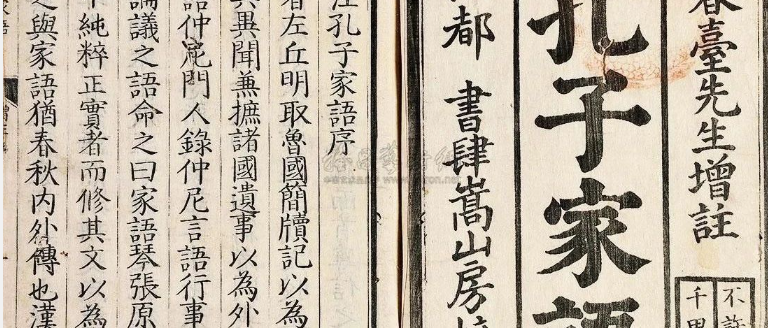 春臺先生增註
不許
千里
孔子家語
都 書肆嵩山房
孔子家語序
者左丘明取魯國簡牘記以為
其異聞兼摭諸國遺事以為外
語仲尼門人錄仲尼言語行事
論議之語命之曰家語琴張原
純粹正實者而修其文以為
之與家語猶春秋內外傳也漢